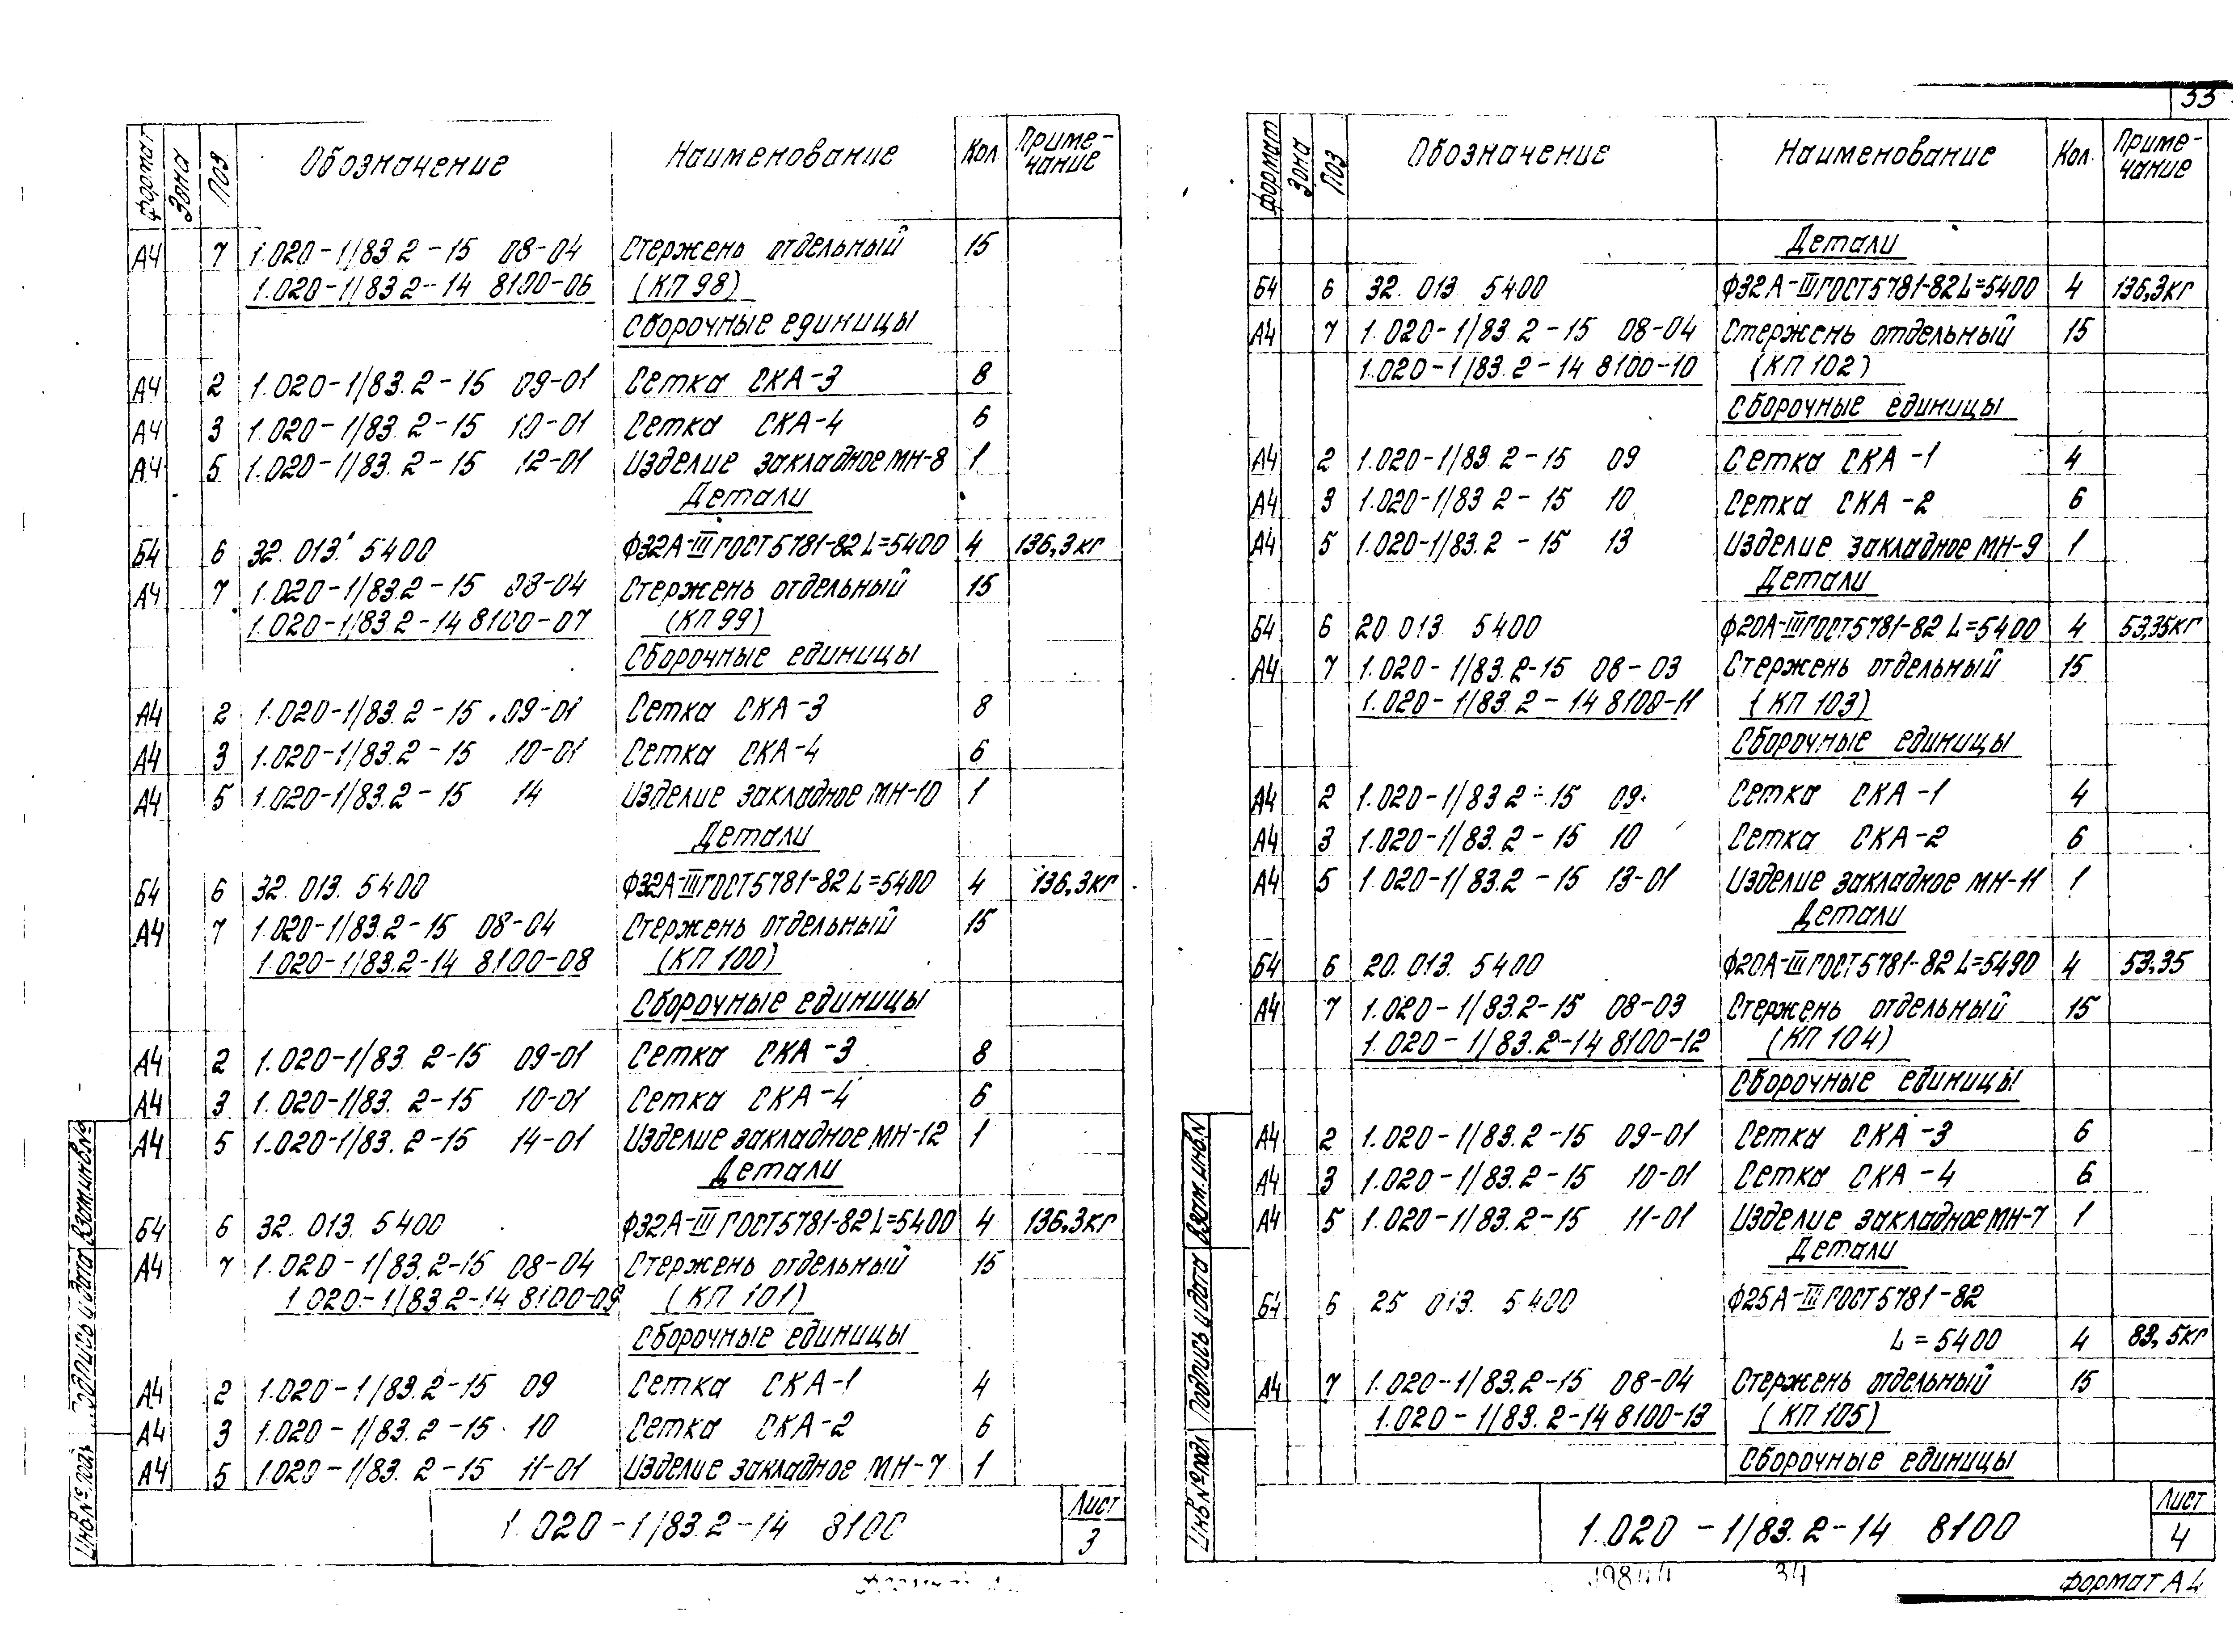 33
Формат Зона Поз Обозначение Наименование Кол Приме-
чание
А4 7 1.020-1/83 2-15 08-04 Стержень отдельный 15
1.020-1/83 2-14 8100-06 (КП 98)
Сборочные единицы
А4 2 1.020-1/83.2-15 09-01 Сетка СКА-3 8
А4 3 1.020-1/83.2-15 10-01 Сетка СКА-4 6
А4 5 1.020-1/83.2-15 12-01 Изделие закладное МН-8 1
Детали
Б4 6 32.013.5400 Ф32А-III ГОСТ5781-82 L=5400 4 136,3кг
А4 7 1.020-1/83.2-15 08-04 Стержень отдельный 15
1.020-1/83.2-14 8100-07 (КП 99)
Сборочные единицы
А4 2 1.020-1/83.2-15 09-01 Сетка СКА-3 8
А4 3 1.020-1/83.2-15 10-01 Сетка СКА-4 6
А4 5 1.020-1/83.2-15 14 Изделие закладное МН-10 1
Детали
Б4 6 32.013.5400 Ф32А-III ГОСТ5781-82 L=5400 4 136,3кг
А4 7 1.020-1/83.2-15 08-04 Стержень отдельный 15
1.020-1/83.2-14 8100-08 (КП 100)
Сборочные единицы
А4 2 1.020-1/83.2-15 09-01 Сетка СКА-3 8
А4 3 1.020-1/83.2-15 10-01 Сетка СКА-4 6
А4 5 1.020-1/83.2-15 14-01 Изделие закладное МН-12 1
Детали
Б4 6 32.013.5400 Ф32А-III ГОСТ5781-82 L=5400 4 136,3кг
А4 7 1.020-1/83.2-15 08-04 Стержень отдельный 15
1.020-1/83.2-14 8100-09 (КП 101)
Сборочные единицы
А4 2 1.020-1/83.2-15 09 Сетка СКА-1 4
А4 3 1.020-1/83.2-15 10 Сетка СКА-2 6
А4 5 1.020-1/83.2-15 11-01 Изделие закладное МН-7 1
Инв.№ подл Подпись и дата Взам.инв.№
1.020-1/83.2-14 8100
Лист
3
Формат Зона Поз Обозначение Наименование Кол. Приме-
чание
Детали
Б4 6 32.013.5400 Ф32А-III ГОСТ5781-82 L=5400 4 136,3кг
А4 7 1.020-1/83.2-15 08-04 Стержень отдельный 15
1.020-1/83.2-14 8100-10 (КП 102)
Сборочные единицы
А4 2 1.020-1/83 2-15 09 Сетка СКА-1 4
А4 3 1.020-1/83 2-15 10 Сетка СКА-2 6
А4 5 1.020-1/83.2-15 13 Изделие закладное МН-9 1
Детали
Б4 6 20 013 5400 Ф20А-III ГОСТ5781-82 L=5400 4 53,35кг
А4 7 1.020-1/83.2-15 08-03 Стержень отдельный 15
1.020-1/83.2-14 8100-11 (КП 103)
Сборочные единицы
А4 2 1.020-1/83 2-15 09 Сетка СКА-1 4
А4 3 1.020-1/83.2-15 10 Сетка СКА-2 6
А4 5 1.020-1/83.2-15 13-01 Изделие закладное МН-11 1
Детали
Б4 6 20.013.5400 Ф20А-III ГОСТ5781-82 L=5490 4 53,35
А4 7 1.020-1/83.2-15 08-03 Стержень отдельный 15
1.020-1/83.2-14 8100-12 (КП 104)
Сборочные единицы
А4 2 1.020-1/83.2-15 09-01 Сетка СКА-3 6
А4 3 1.020-1/83.2-15 10-01 Сетка СКА-4 6
А4 5 1.020-1/83.2-15 11-01 Изделие закладное МН-7 1
Детали
Б4 6 25 013.5400 Ф25А-III ГОСТ5781-82
L=5400 4 83,5кг
А4 7 1.020-1/83.2-15 08-04 Стержень отдельный 15
1.020-1/83.2-14 8100-13 (КП 105)
Сборочные единицы
Инв.№ подл Подпись и дата Взам.инв.N
1.020-1/83.2-14 8100
Лист
4
34
формат А4